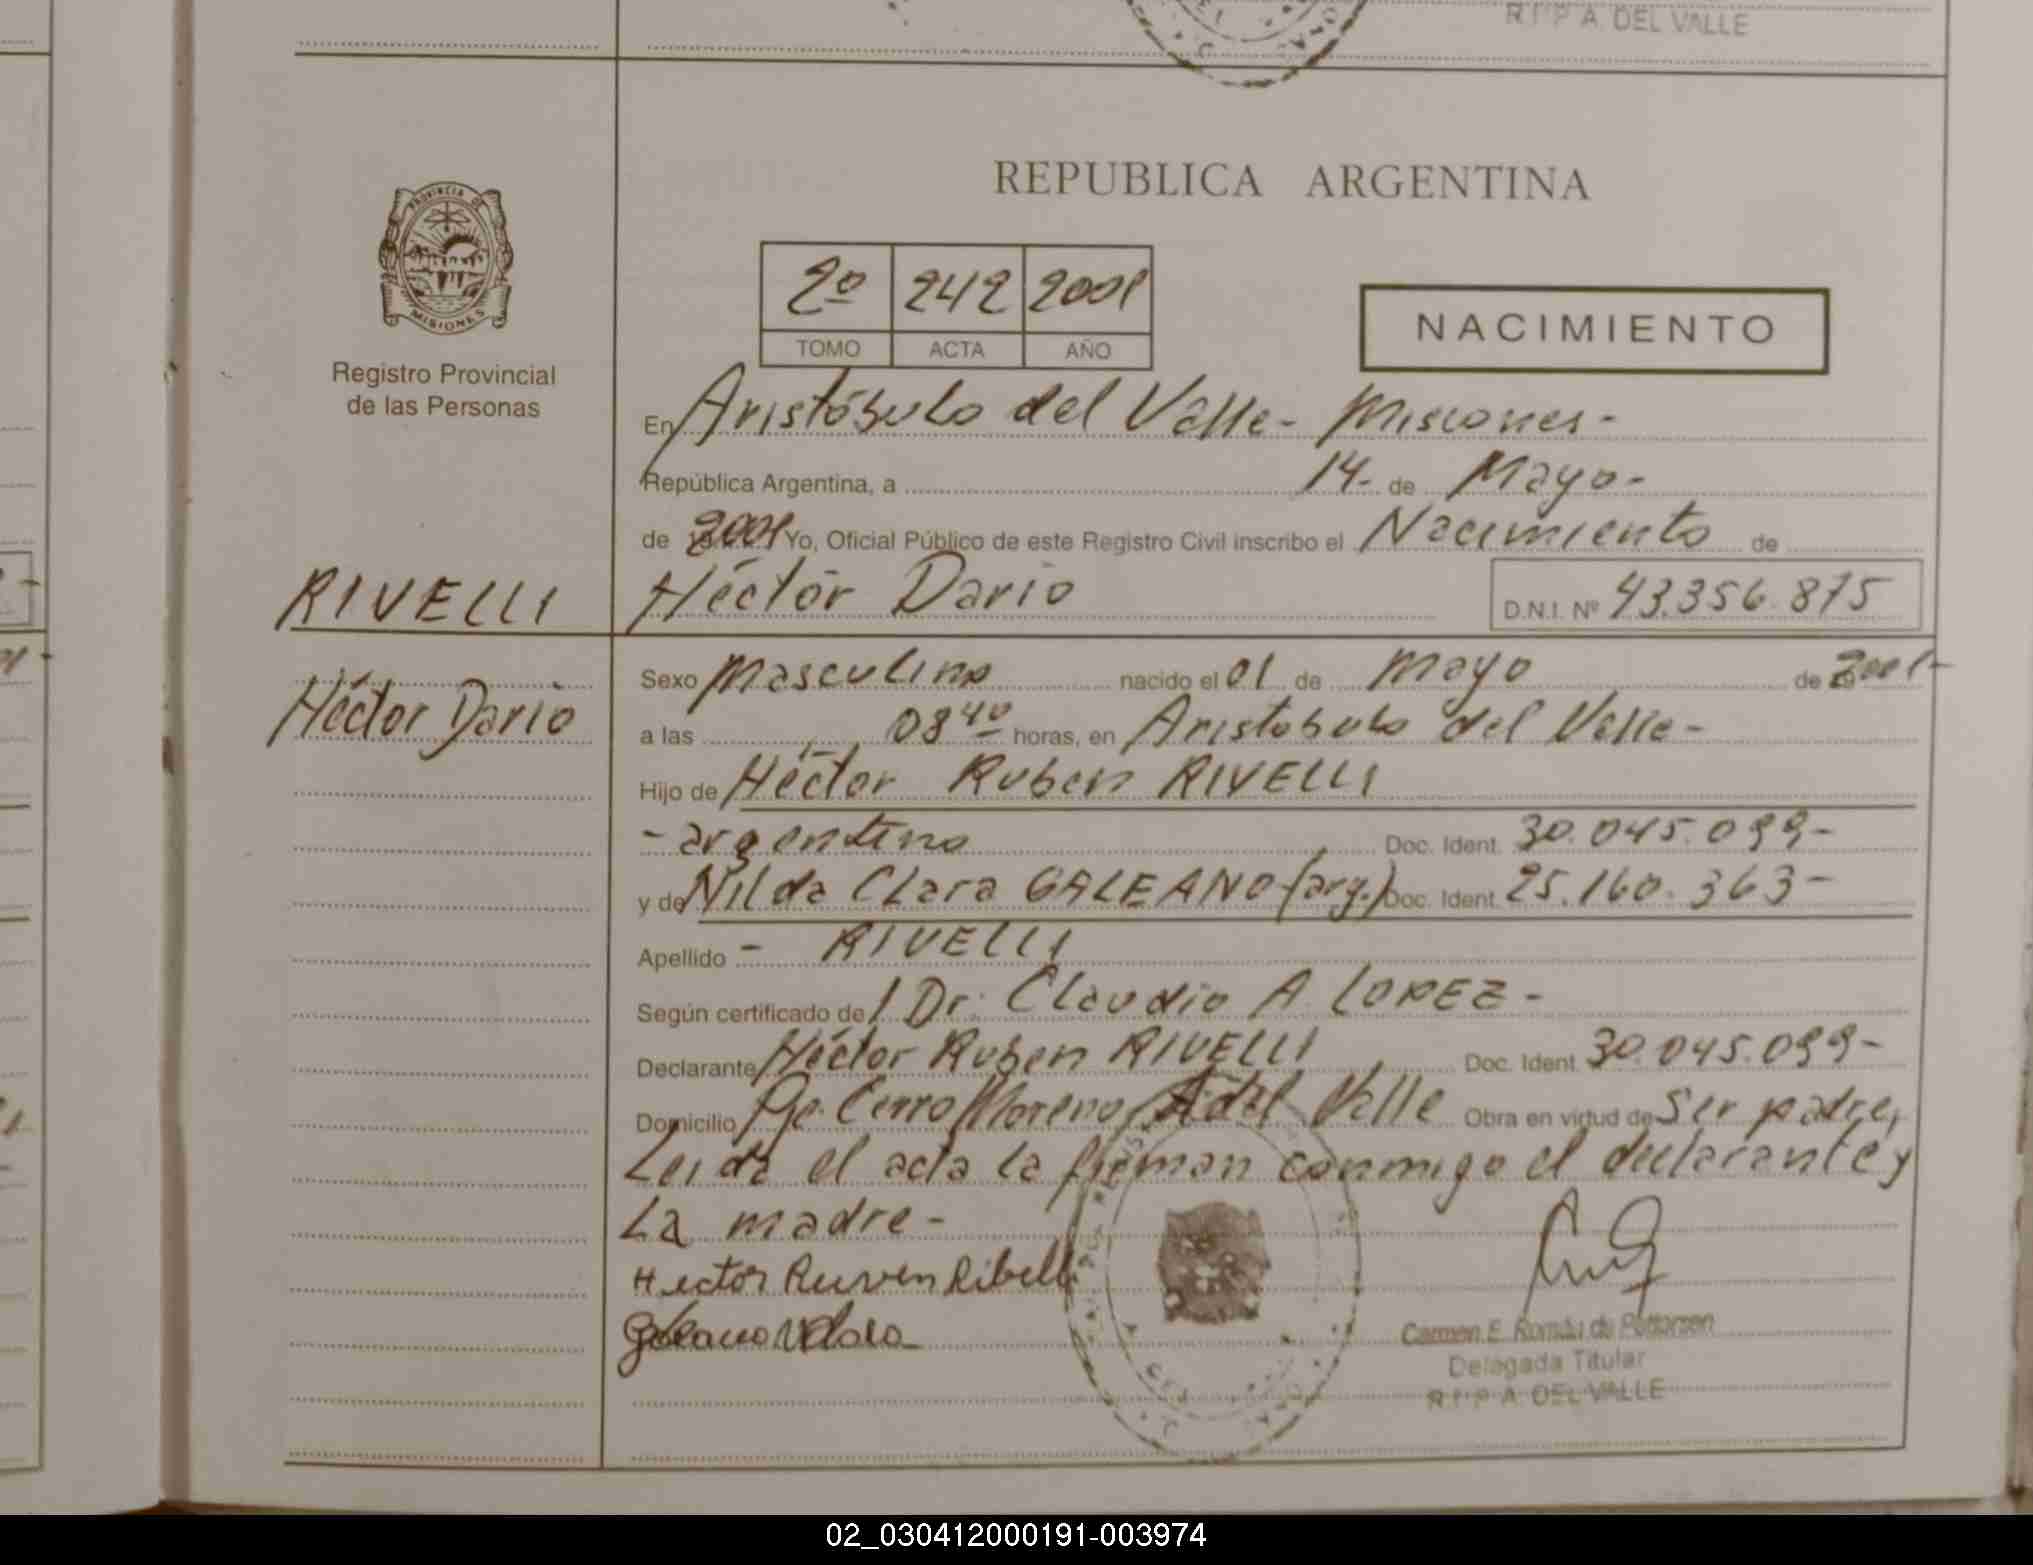 R.P.P A. DEL VALLE
REPUBLICA ARGENTINA
PROVINCIA DE
MISIONES
2º 242 2001
TOMO ACTA AÑO
NACIMIENTO
Registro Provincial
de las Personas
En Aristóbulo del Valle - Misiones -
República Argentina, a 14- de Mayo-
de 2001 Yo, Oficial Público de este Registro Civil inscribo el Nacimiento de
RIVELLI Héctor Dario D.N.I. Nº 43.356.875
Héctor Dario
Sexo Masculino nacido el 01 de Mayo de 2001-
a las 08 40 horas, en Aristobulo del Valle-
Hijo de Héctor Ruben RIVELLI
- argentino Doc. Ident. 30.045.099-
y de Nilda Clara GALEANO (arg.) Doc. Ident. 25.160.363-
Apellido - RIVELLI
Según certificado de / Dr. Claudio A. LOPEZ -
Declarante Héctor Ruben RIVELLI Doc. Ident. 30.045.099-
Domicilio Pje. Cerro Moreno, A del Valle Obra en virtud de Ser padre,
Leida el acta la firman conmigo el declarante y
La madre -
Hector Ruven Ribelli
Galeano
Carmen E. Román de
Delegada Titular
R.P.P A. DEL VALLE
02_030412000191-003974